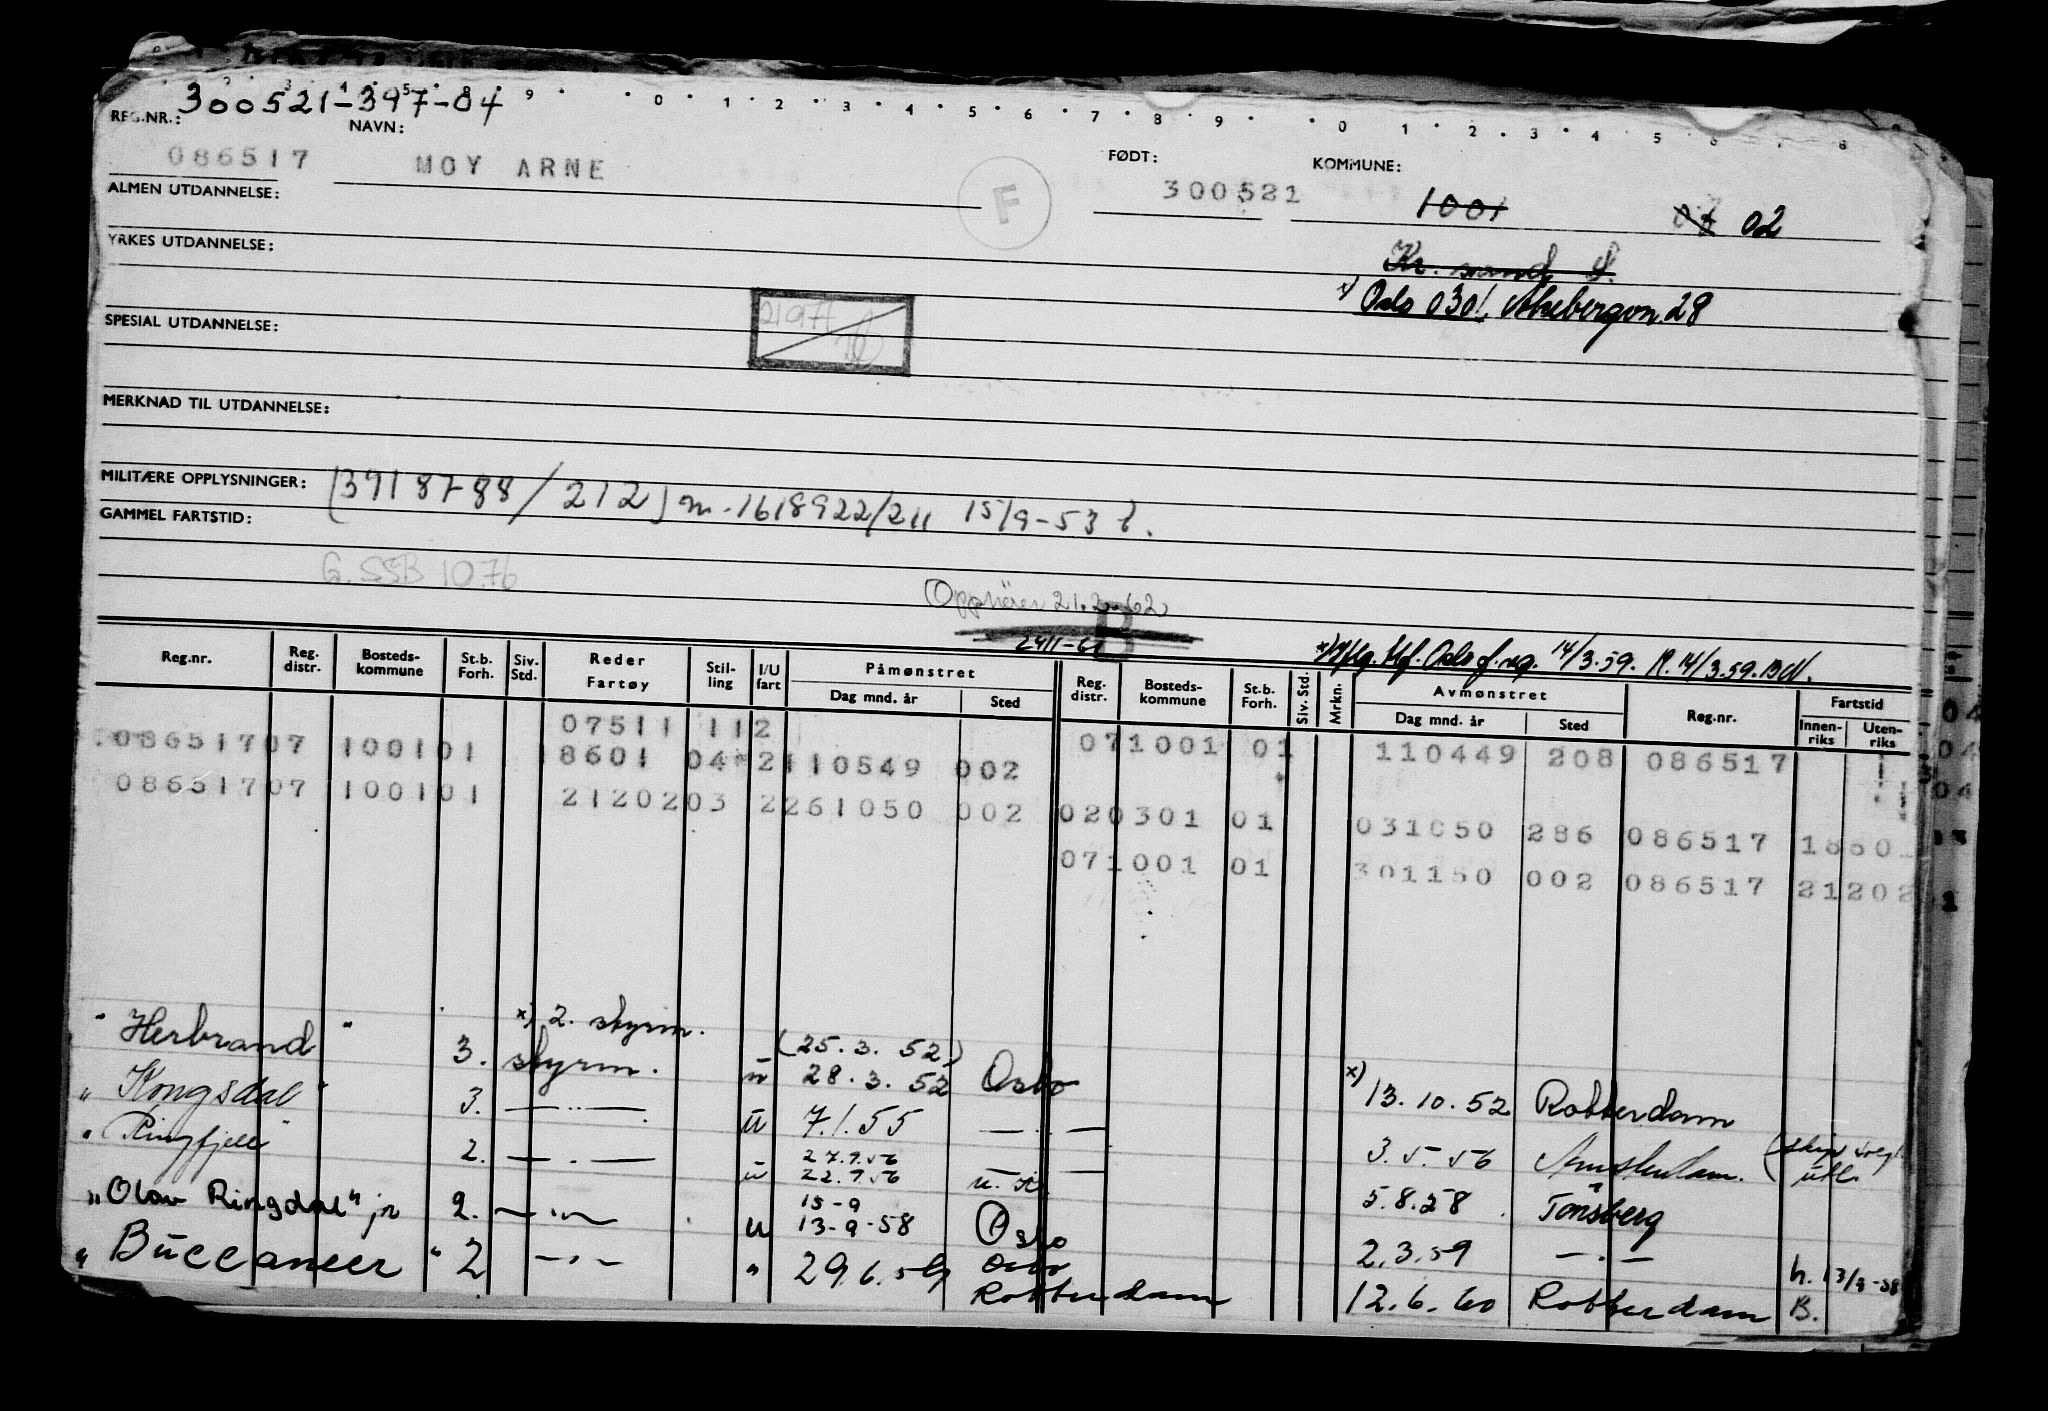 300521-397-04
REG.NR.: NAVN: FØDT: KOMMUNE:
086517 MOY ARNE 300521 1001 02
ALMEN UTDANNELSE:
F
YRKES UTDANNELSE:
Kr. sand S.
x) Oslo 0301, Akebergvn. 28
SPESIAL UTDANNELSE:
MERKNAD TIL UTDANNELSE:
MILITÆRE OPPLYSNINGER: (3918788/212) m.1618922/211 15/9-53
GAMMEL FARTSTID:
G. SSB 10.76
Opphører 21.2.62
B
Oslo f. reg. 14/3.59. R. 14/3.59.
Reg.nr. Reg. distr. Bosteds- kommune St.b. Forh. Siv. Std. Reder Fartøy Stil- ling I/U fart Påmønstret Dag mnd. år Sted Reg. distr. Bosteds- kommune St.b. Forh. Siv. Std. Mrkn. Avmønstret Dag mnd. år Sted Reg.nr. Fartstid Innen- riks Uten- riks
07511 112 071001 01 110449 208 086517
08651707 100101 18601 04 2110549 002
020301 01 031050 286 086517 18601
08651707 100101 2120203 2261050 002
071001 01 301150 002 086517 21202
x) 2. styrm.
"Herbrand" 3. styrm. u (25.3.52) 28.3.52 Oslo x) 13.10.52 Rotterdam
"Kongsdal" 3. — " — u 7.1.55 — " — 3.5.56 Amsterdam. utl.
"Ringfjell" 2. — " — u 27.9.56 22.9.56 u. K. 5.8.58 Tønsberg
"Olav Ringdal" jr 2. — " — u 15-9 13-9-58 Oslo 2.3.59 — " — h. 13/9-58
"Buccaneer" 2 — " — " 29.6.59 Oslo Rotterdam 12.6.60 Rotterdam B.